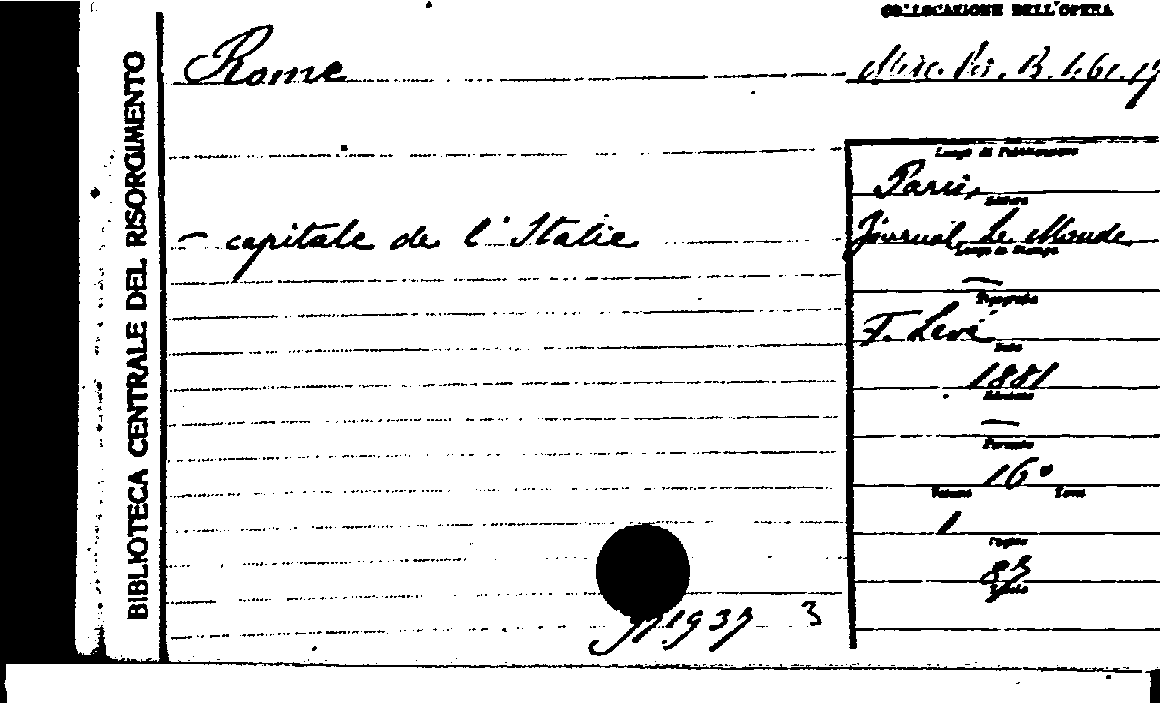 COLLOCAZIONE DELL'OPERA
Rome
Misc. Ris. B.
BIBLIOTECA CENTRALE DEL RISORGIMENTO
Luogo di Pubblicazione
Paris
Editore
— capitale de l'Italie
Journal Le Monde
Luogo di Stampa
—
Tipografia
F. Levé
Data
1881
Edizione
—
Formato
16°
Volume Tomi
1
Pagine
83
1937 3